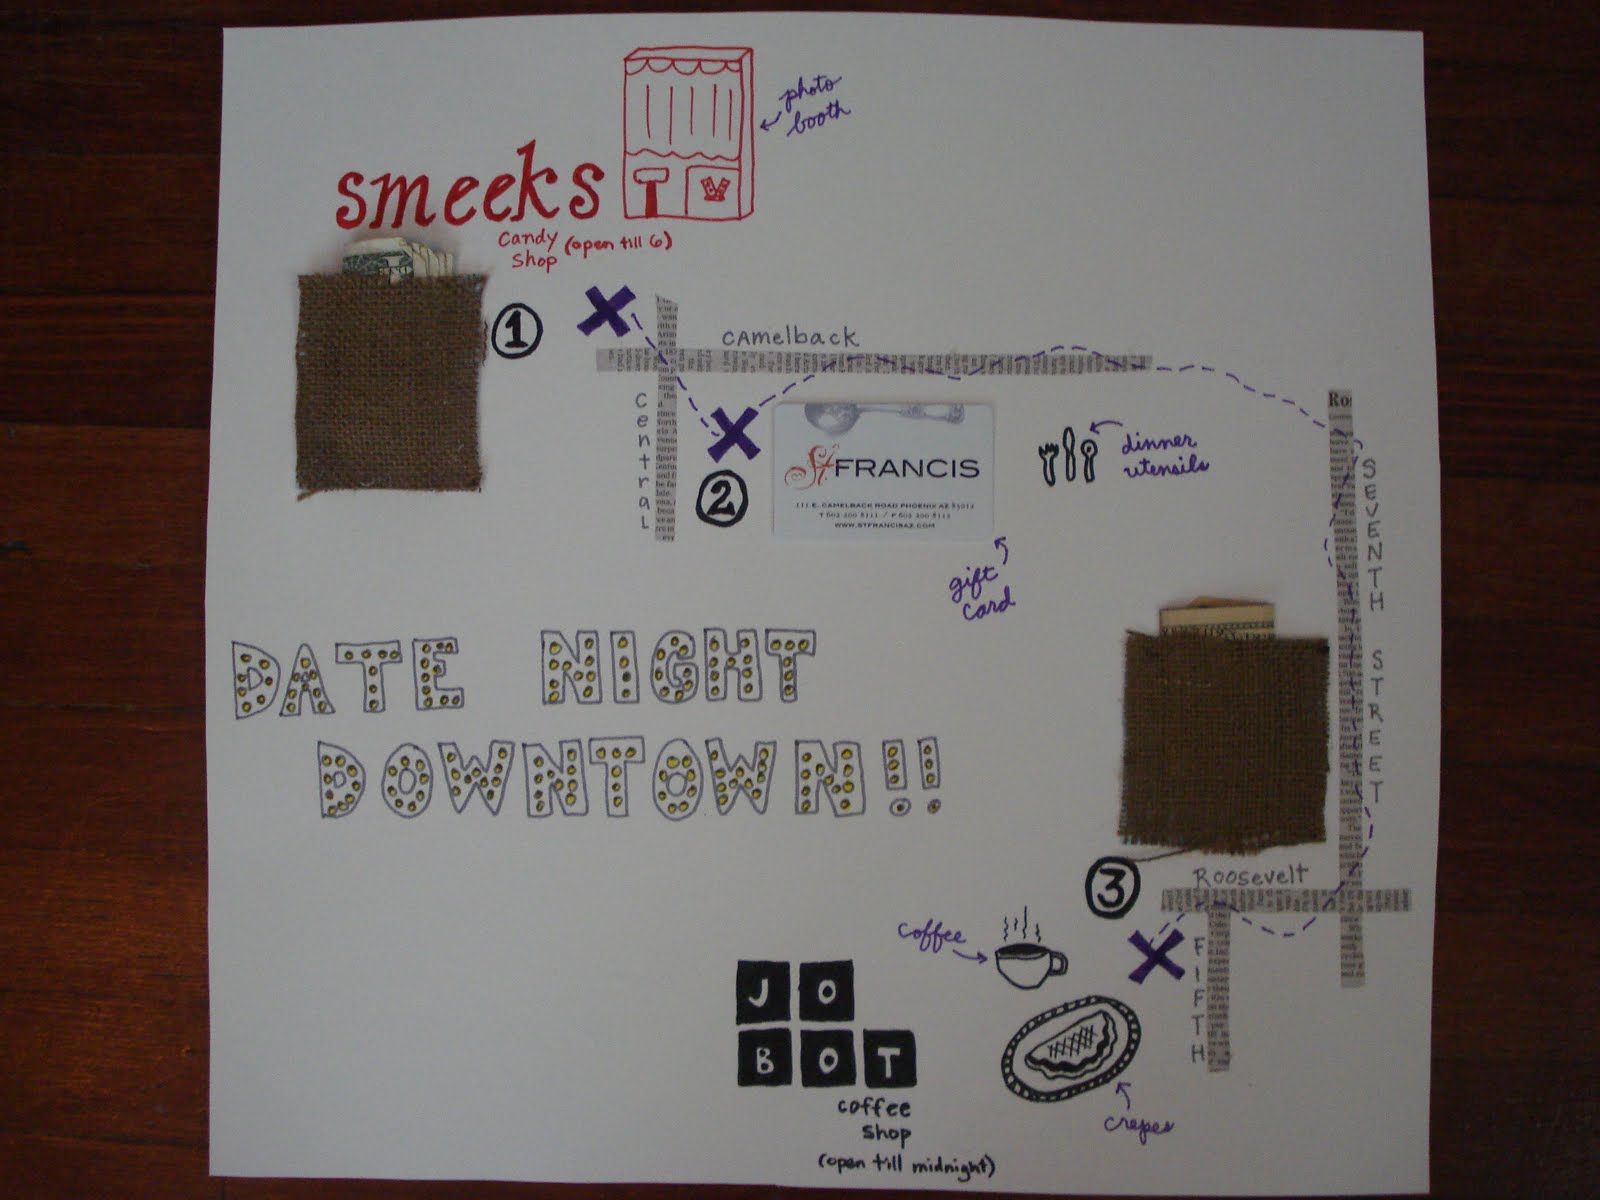 photo
booth
smeeks
candy
shop
(open till 6)
1
Camelback
central
2
St FRANCIS
111 E. CAMELBACK ROAD PHOENIX AZ 85012
T 602 200 8111 / F 602 200 8112
WWW.STFRANCISAZ.COM
dinner
utensils
gift
card
Ro
SEVENTH STREET
DATE NIGHT
DOWNTOWN!!
3
Roosevelt
FIFTH
coffee
JO
BOT
coffee
shop
(open till midnight)
crepes